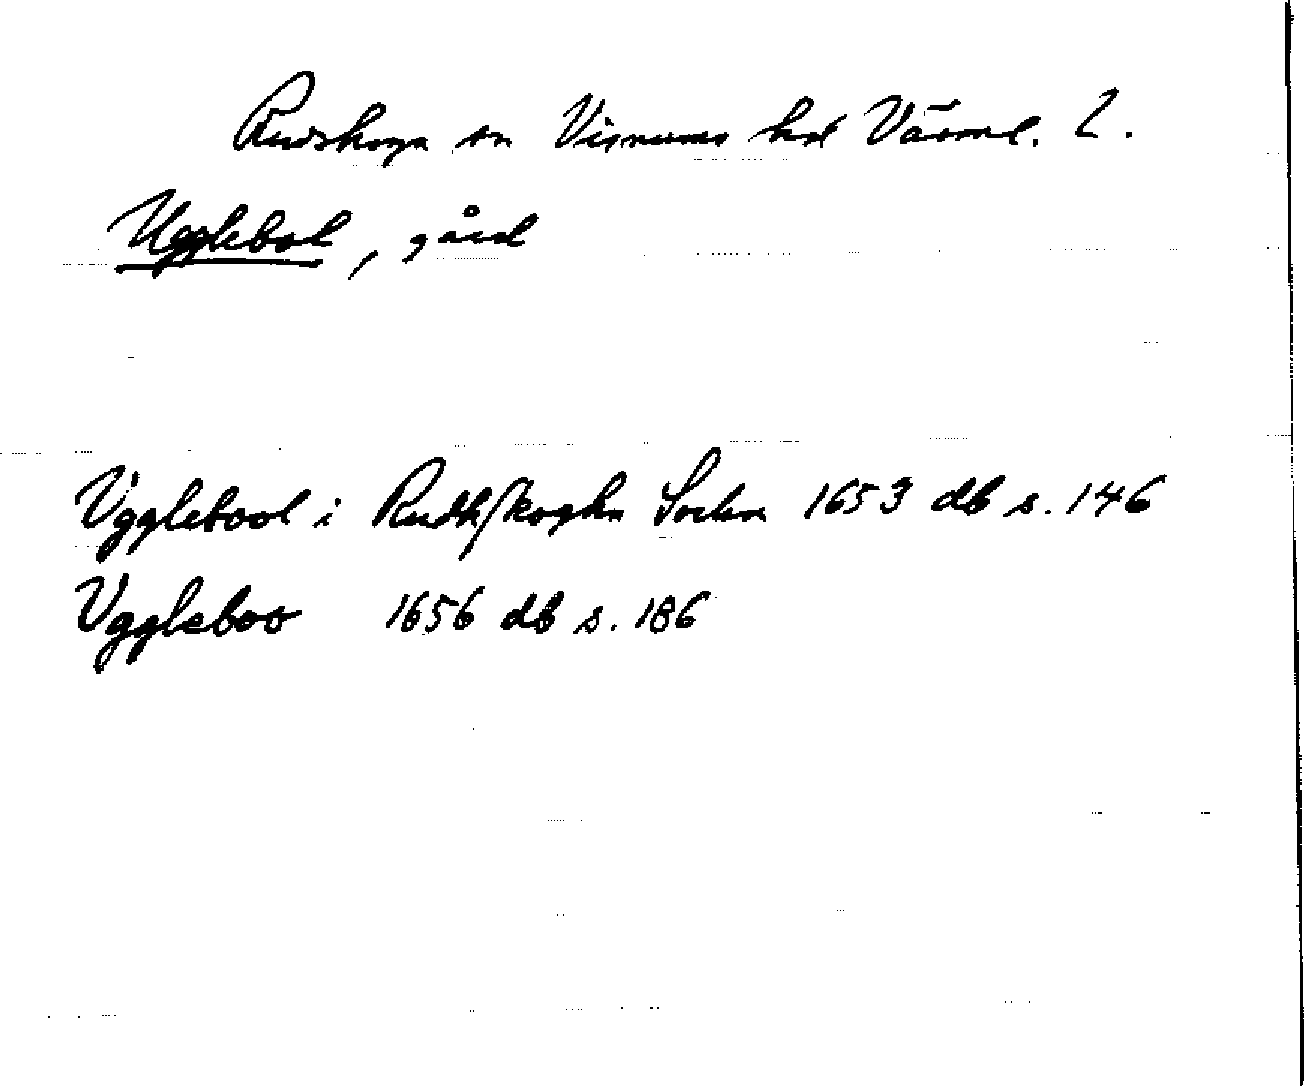 Rudskoga sn Visnums hd Värml. l.
Ugglebol, gård
Vgglebool i Rudhskogha Sochn 1653 db s. 146
Vggleboo 1656 db s. 186